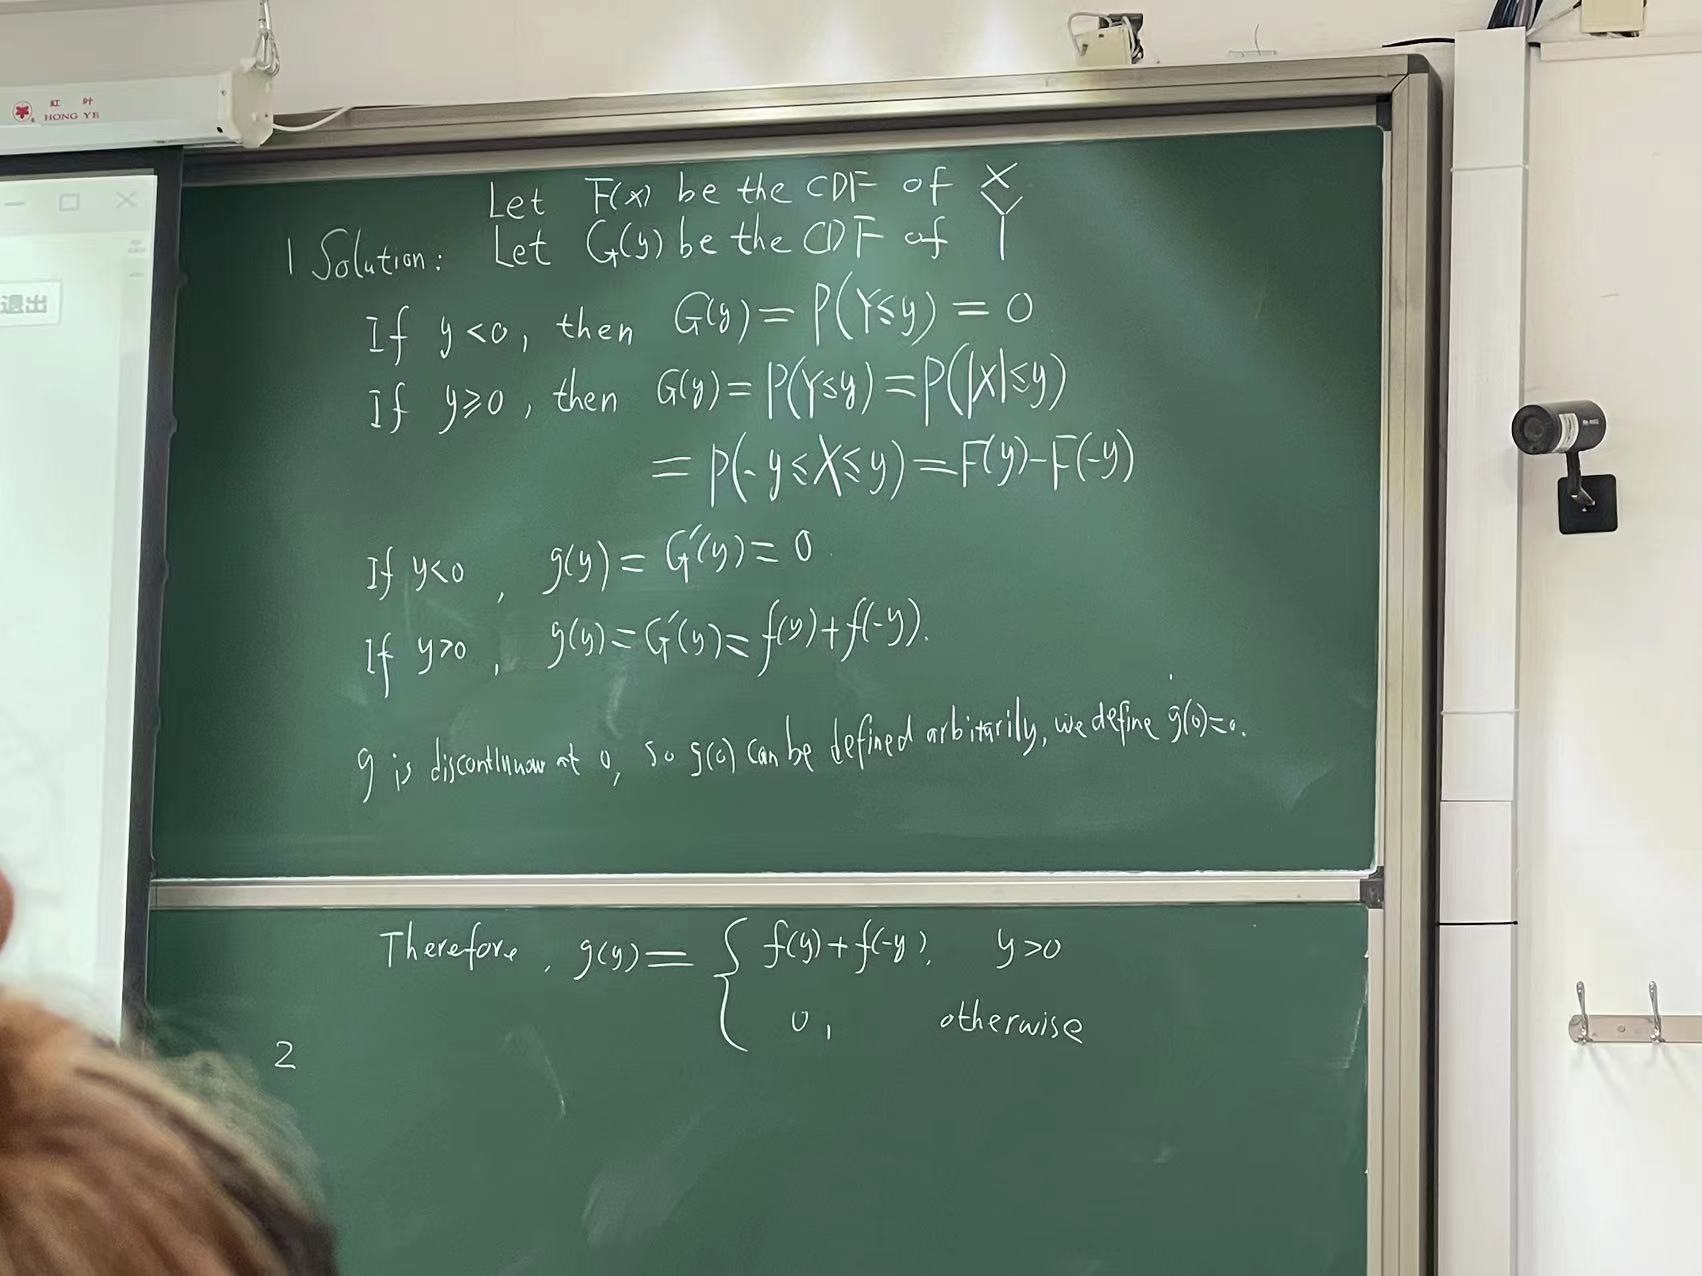 红叶
HONG YE
退出
Let F(x) be the CDF of X
1 Solution: Let G(y) be the CDF of Y
If y<0, then G(y) = P(Y≤y) = 0
If y≥0, then G(y) = P(Y≤y) = P(|X|≤y)
= P(-y≤X≤y) = F(y)-F(-y)
If y<0, g(y) = G'(y) = 0
If y>0, g(y) = G'(y) = f(y)+f(-y).
g is discontinuou at 0, so g(0) can be defined arbitarily, we define g(0)=0.
Therefore, g(y) = { f(y)+f(-y), y>0
0, otherwise
2